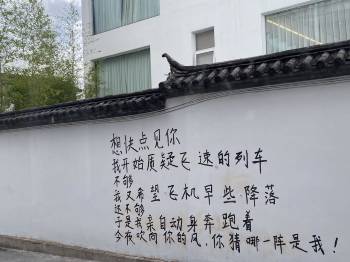 想快点见你
我开始质疑飞速的列车
不够
我又希望飞机早些降落
还不够
于是我亲自动身奔跑着
今夜吹向你的风，你猜哪一阵是我！